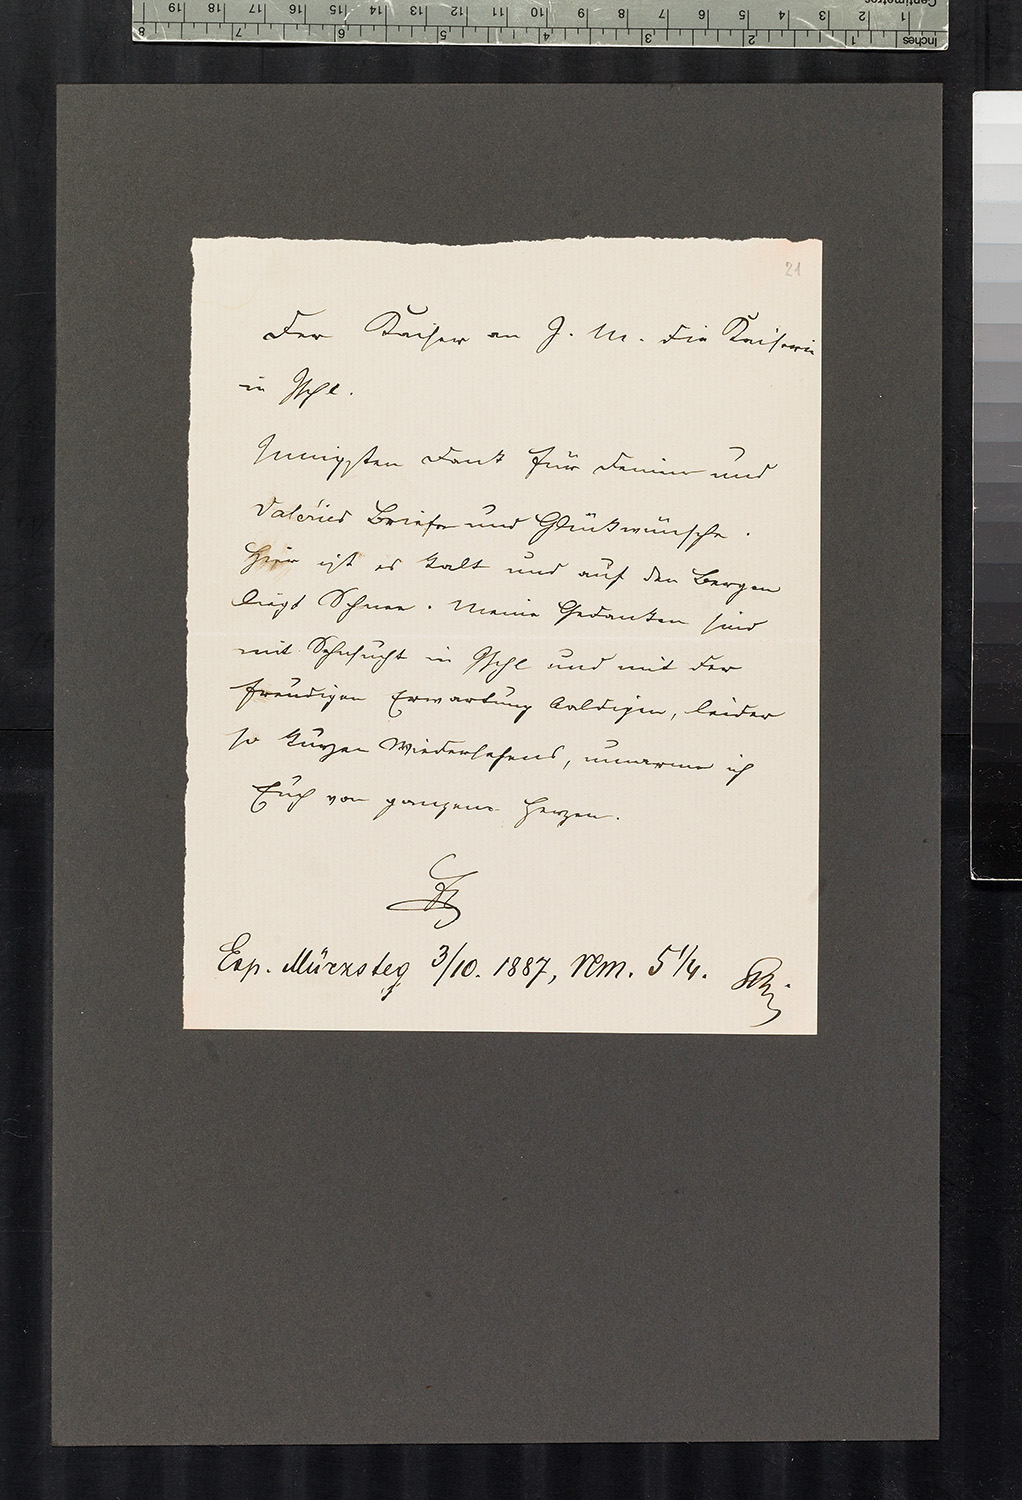 Centimetres 1 2 3 4 5 6 7 8 9 10 11 12 13 14 15 16 17 18 19
Inches 1 2 3 4 5 6 7 8
21
Der Kaiser an I. M. die Kaiserin
in Ischl.
Innigsten Dank für Deine und
Valéries Briefe und Glückwünsche.
Hier ist es kalt und auf den Bergen
liegt Schnee. Meine Gedanken sind
mit Sehnsucht in Ischl und mit der
freudigen Erwartung baldigen, leider
so kurzen Wiedersehens, umarme ich
Euch von ganzem Herzen.
Exp. Mürzsteg 3/10. 1887, Nm. 5 1/4.